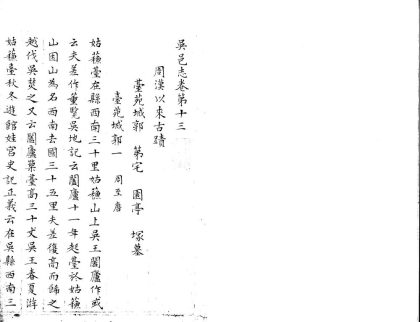 吳邑志卷第十三
周漢以來古蹟
臺苑城郭 第宅 園亭 塚墓
臺苑城郭一 周至唐
姑蘇臺在縣西南三十里姑蘇山上吳王闔廬作或
云夫差作董覽吳地記云闔廬十一年起臺於姑蘇
山因山為名西南去國三十五里夫差復高而飾之
越伐吳焚之又云闔廬築臺高三十丈吳王春夏游
姑蘇臺秋冬遊館娃宮史記正義云在吳縣西南三